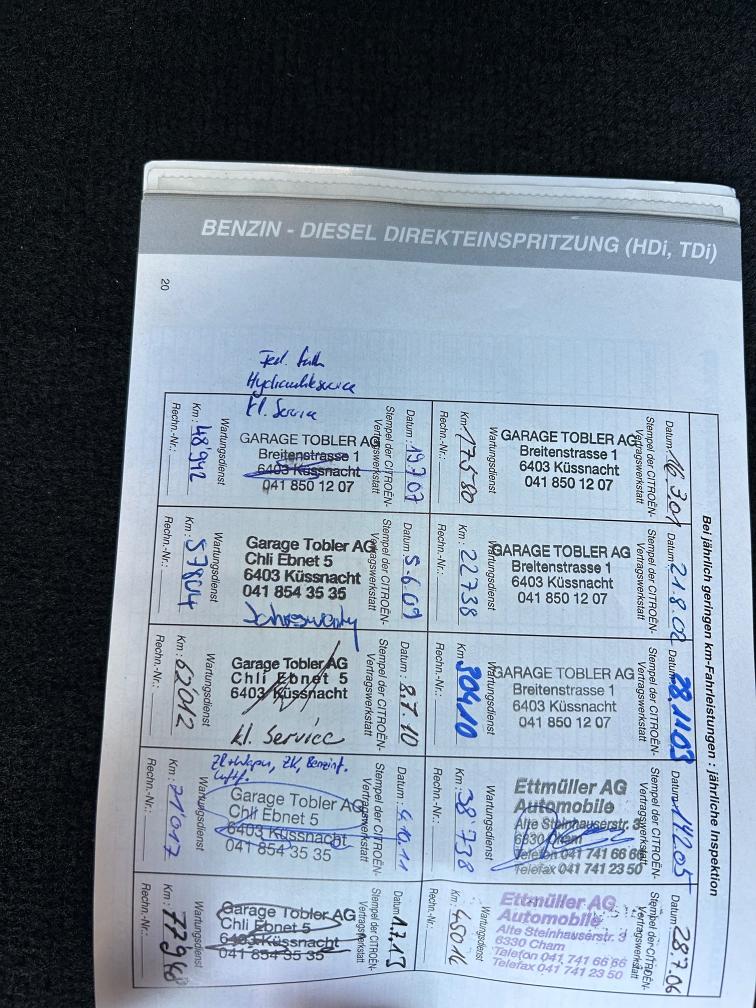 BENZIN - DIESEL DIREKTEINSPRITZUNG (HDi, TDi)
20
Bei jährlich geringen km-Fahrleistungen : jährliche Inspektion
Datum: 16.3.01
Stempel der CITROËN-
Vertragswerkstatt
GARAGE TOBLER AG
Breitenstrasse 1
6403 Küssnacht
041 850 12 07
Wartungsdienst
Km: 17580
Rechn.-Nr.:
Datum: 21.8.02
Stempel der CITROËN-
Vertragswerkstatt
GARAGE TOBLER AG
Breitenstrasse 1
6403 Küssnacht
041 850 12 07
Wartungsdienst
Km: 22738
Rechn.-Nr.:
Datum: 28.11.03
Stempel der CITROËN-
Vertragswerkstatt
GARAGE TOBLER AG
Breitenstrasse 1
6403 Küssnacht
041 850 12 07
Wartungsdienst
Km: 30410
Rechn.-Nr.:
Datum:
Stempel der CITROËN-
Vertragswerkstatt
Ettmüller AG
Automobile
Alte Steinhauserstr. 3
6330 Cham
Telefon 041 741 66 66
Telefax 041 741 23 50
Wartungsdienst
Km: 38738
Rechn.-Nr.:
Datum: 28.7.06
Stempel der CITROËN-
Vertragswerkstatt
Ettmüller AG
Automobile
Alte Steinhauserstr. 3
6330 Cham
Telefon 041 741 66 66
Telefax 041 741 23 50
Wartungsdienst
Km: 45014
Rechn.-Nr.:
Hydraulikservice
kl. Service
Datum: 19.7.07
Stempel der CITROËN-
Vertragswerkstatt
GARAGE TOBLER AG
Breitenstrasse 1
6403 Küssnacht
041 850 12 07
Wartungsdienst
Km: 48942
Rechn.-Nr.:
Datum: 5.6.09
Stempel der CITROËN-
Vertragswerkstatt
Garage Tobler AG
Chli Ebnet 5
6403 Küssnacht
041 854 35 35
Wartungsdienst
Km: 57804
Rechn.-Nr.:
Datum: 8.7.10
Stempel der CITROËN-
Vertragswerkstatt
Garage Tobler AG
Chli Ebnet 5
6403 Küssnacht
kl. Service
Wartungsdienst
Km: 62012
Rechn.-Nr.:
Datum: 4.10.11
Stempel der CITROËN-
Vertragswerkstatt
Garage Tobler AG
Chli Ebnet 5
6403 Küssnacht
041 854 35 35
Wartungsdienst
Km: 71017
Rechn.-Nr.:
Datum: 1.7.13
Stempel der CITROËN-
Vertragswerkstatt
Garage Tobler AG
Chli Ebnet 5
6403 Küssnacht
041 854 35 35
Wartungsdienst
Km: 77968
Rechn.-Nr.: